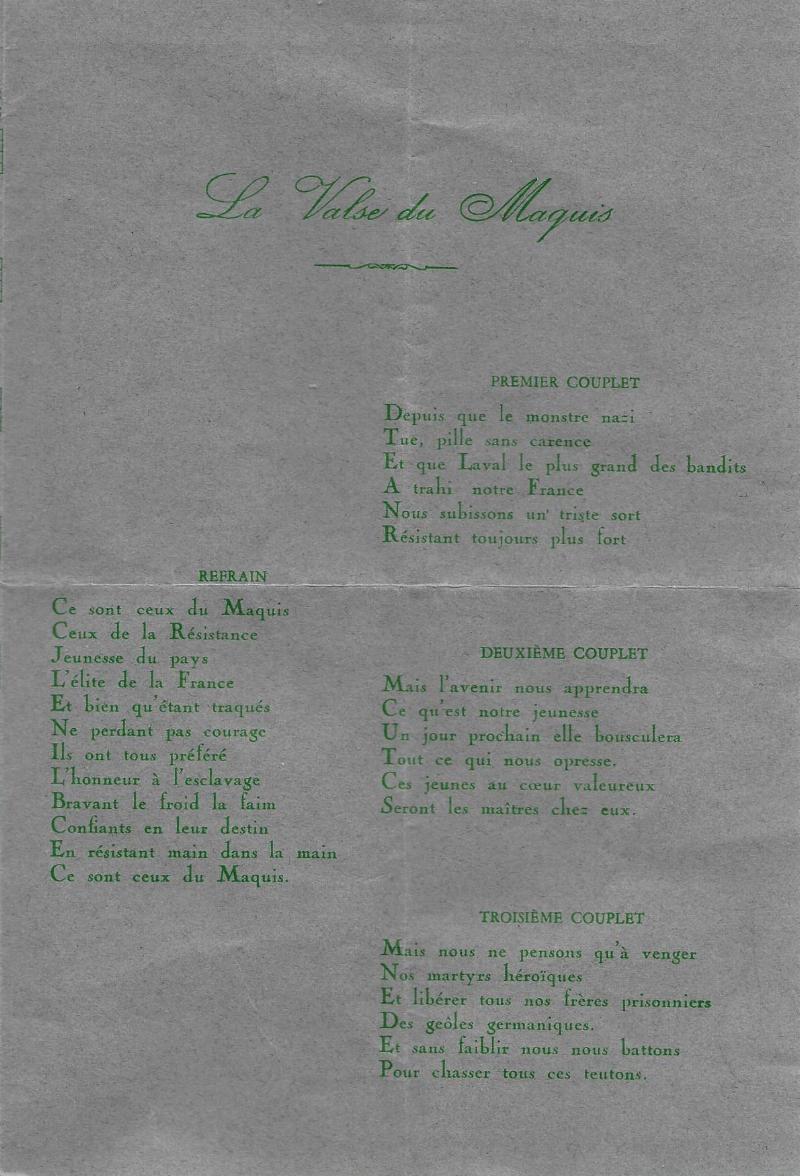 La Valse du Maquis
PREMIER COUPLET
Depuis que le monstre nazi
Tue, pille sans carence
Et que Laval le plus grand des bandits
A trahi notre France
Nous subissons un' triste sort
Résistant toujours plus fort
REFRAIN
Ce sont ceux du Maquis
Ceux de la Résistance
Jeunesse du pays
L'élite de la France
Et bien qu'étant traqués
Ne perdant pas courage
Ils ont tous préféré
L'honneur à l'esclavage
Bravant le froid la faim
Confiants en leur destin
En résistant main dans la main
Ce sont ceux du Maquis.
DEUXIÈME COUPLET
Mais l'avenir nous apprendra
Ce qu'est notre jeunesse
Un jour prochain elle bousculera
Tout ce qui nous opresse.
Ces jeunes au cœur valeureux
Seront les maîtres chez eux.
TROISIÈME COUPLET
Mais nous ne pensons qu'à venger
Nos martyrs héroïques
Et libérer tous nos frères prisonniers
Des geôles germaniques.
Et sans faiblir nous nous battons
Pour chasser tous ces teutons.